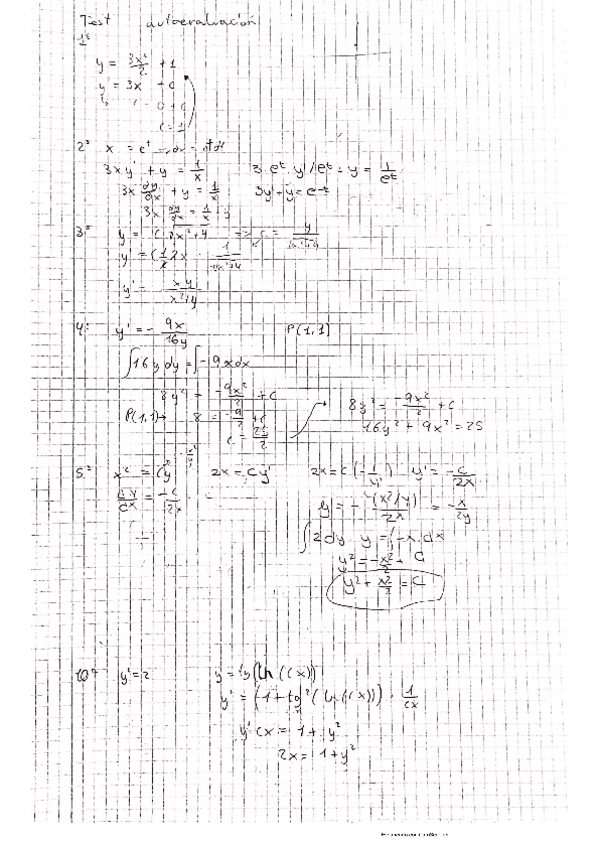 Test autoevaluación
1º
y = 3x²/2 + 1
y' = 3x + 0
c = 1
2º x = e^t
3xy' + y = 1/x 3·e^t·y'/e^t + y = 1/e^t
3x dy/dx + y = 1/x 3y' + y = e^-t
3x dy/dx = 1/x - y
3º
y' = xy/x²+4
4º y' = - 9x/16y P(1,1)
∫16y dy = ∫-9x dx
8y² = -9x²/2 + c 8y² = -9x²/2 + c
P(1,1)→ 8 = -9/2 + c 16y² + 9x² = 25
c = 25/2
5º x² = Cy 2x = Cy' 2x = C(-1/y') y' = -C/2x
dy/dx = -C/2x y' = -(x²/y)/2x = -x/2y
∫2dy y = ∫-x dx
y² = -x²/2 + C
y² + x²/2 = C
10º y' = 2 y = tg(ln(cx))
y' = (1 + tg²(ln(cx))) · 1/cx
y' cx = 1 + y²
2x = 1 + y²